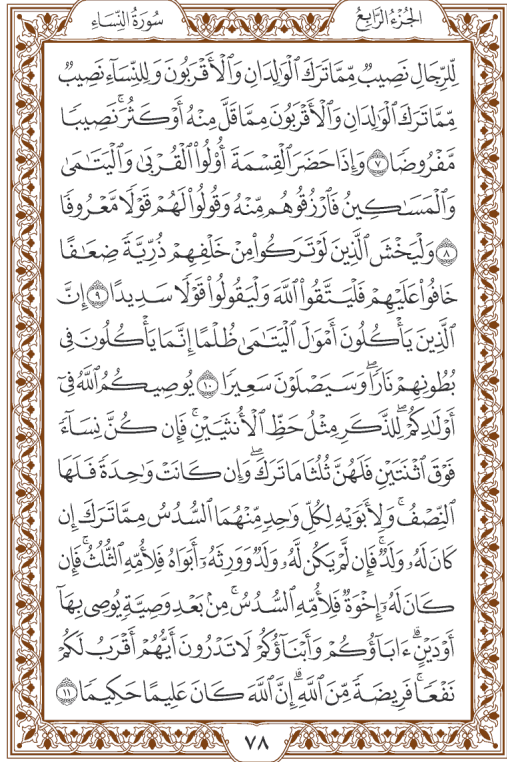 الجُزْءُ الرَّابِعُ
سُورَةُ النِّسَاءِ
لِّلرِّجَالِ نَصِيبٌ مِّمَّا تَرَكَ ٱلْوَٰلِدَانِ وَٱلْأَقْرَبُونَ وَلِلنِّسَآءِ نَصِيبٌ
مِّمَّا تَرَكَ ٱلْوَٰلِدَانِ وَٱلْأَقْرَبُونَ مِمَّا قَلَّ مِنْهُ أَوْ كَثُرَۚ نَصِيبًا
مَّفْرُوضًا ٧ وَإِذَا حَضَرَ ٱلْقِسْمَةَ أُو۟لُوا۟ ٱلْقُرْبَىٰ وَٱلْيَتَٰمَىٰ
وَٱلْمَسَٰكِينُ فَٱرْزُقُوهُم مِّنْهُ وَقُولُوا۟ لَهُمْ قَوْلًا مَّعْرُوفًا
٨ وَلْيَخْشَ ٱلَّذِينَ لَوْ تَرَكُوا۟ مِنْ خَلْفِهِمْ ذُرِّيَّةً ضِعَٰفًا
خَافُوا۟ عَلَيْهِمْ فَلْيَتَّقُوا۟ ٱللَّهَ وَلْيَقُولُوا۟ قَوْلًا سَدِيدًا ٩ إِنَّ
ٱلَّذِينَ يَأْكُلُونَ أَمْوَٰلَ ٱلْيَتَٰمَىٰ ظُلْمًا إِنَّمَا يَأْكُلُونَ فِى
بُطُونِهِمْ نَارًاۖ وَسَيَصْلَوْنَ سَعِيرًا ١٠ يُوصِيكُمُ ٱللَّهُ فِىٓ
أَوْلَٰدِكُمْۖ لِلذَّكَرِ مِثْلُ حَظِّ ٱلْأُنثَيَيْنِۚ فَإِن كُنَّ نِسَآءً
فَوْقَ ٱثْنَتَيْنِ فَلَهُنَّ ثُلُثَا مَا تَرَكَۖ وَإِن كَانَتْ وَٰحِدَةً فَلَهَا
ٱلنِّصْفُۚ وَلِأَبَوَيْهِ لِكُلِّ وَٰحِدٍ مِّنْهُمَا ٱلسُّدُسُ مِمَّا تَرَكَ إِن
كَانَ لَهُۥ وَلَدٌۚ فَإِن لَّمْ يَكُن لَّهُۥ وَلَدٌ وَوَرِثَهُۥٓ أَبَوَاهُ فَلِأُمِّهِ ٱلثُّلُثُۚ فَإِن
كَانَ لَهُۥٓ إِخْوَةٌ فَلِأُمِّهِ ٱلسُّدُسُۚ مِنۢ بَعْدِ وَصِيَّةٍ يُوصِى بِهَآ
أَوْ دَيْنٍۗ ءَابَآؤُكُمْ وَأَبْنَآؤُكُمْ لَا تَدْرُونَ أَيُّهُمْ أَقْرَبُ لَكُمْ
نَفْعًاۚ فَرِيضَةً مِّنَ ٱللَّهِۗ إِنَّ ٱللَّهَ كَانَ عَلِيمًا حَكِيمًا ١١
٧٨